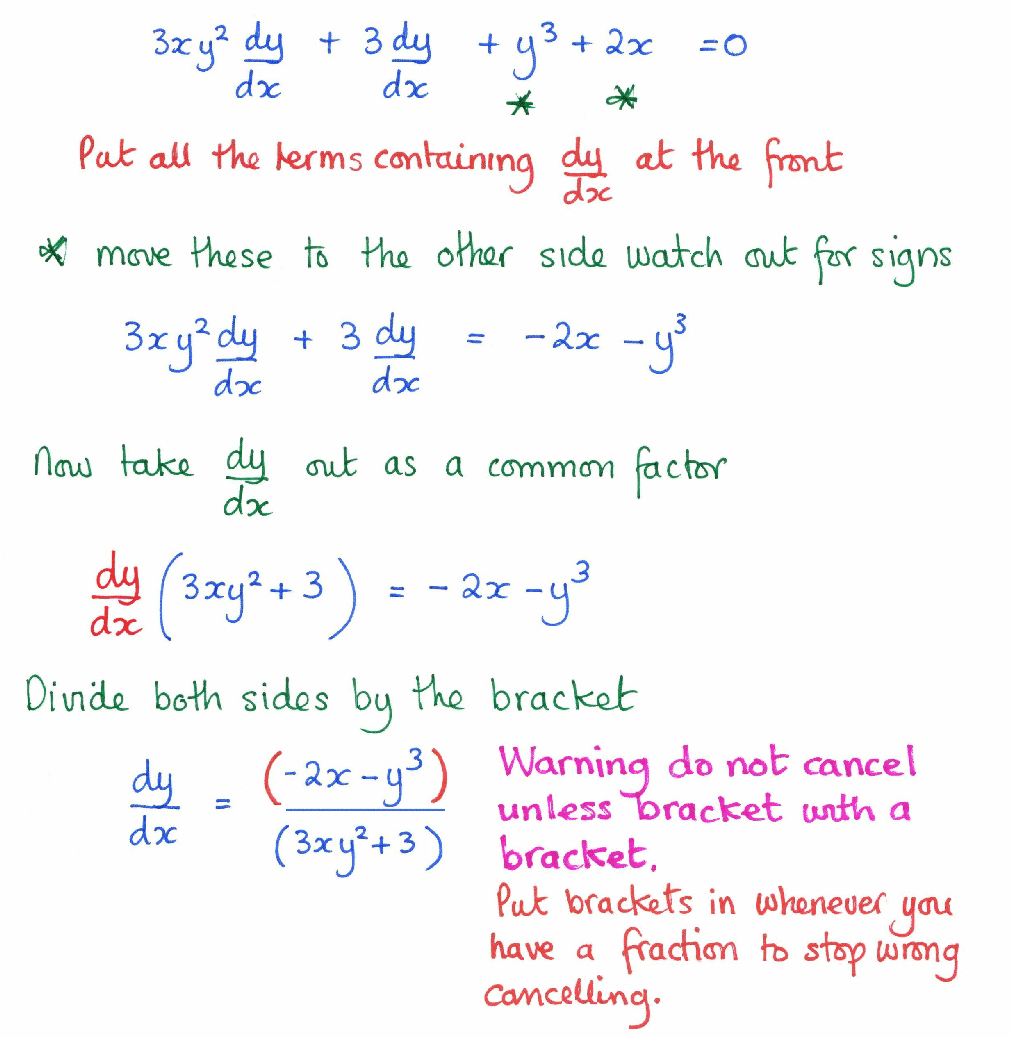 3xy² dy/dx + 3 dy/dx + y³ + 2x = 0
* *
Put all the terms containing dy/dx at the front
* move these to the other side watch out for signs
3xy² dy/dx + 3 dy/dx = -2x - y³
Now take dy/dx out as a common factor
dy/dx (3xy² + 3) = -2x - y³
Divide both sides by the bracket
dy/dx = (-2x - y³)/(3xy² + 3)
Warning do not cancel
unless bracket with a
bracket.
Put brackets in whenever you
have a fraction to stop wrong
cancelling.